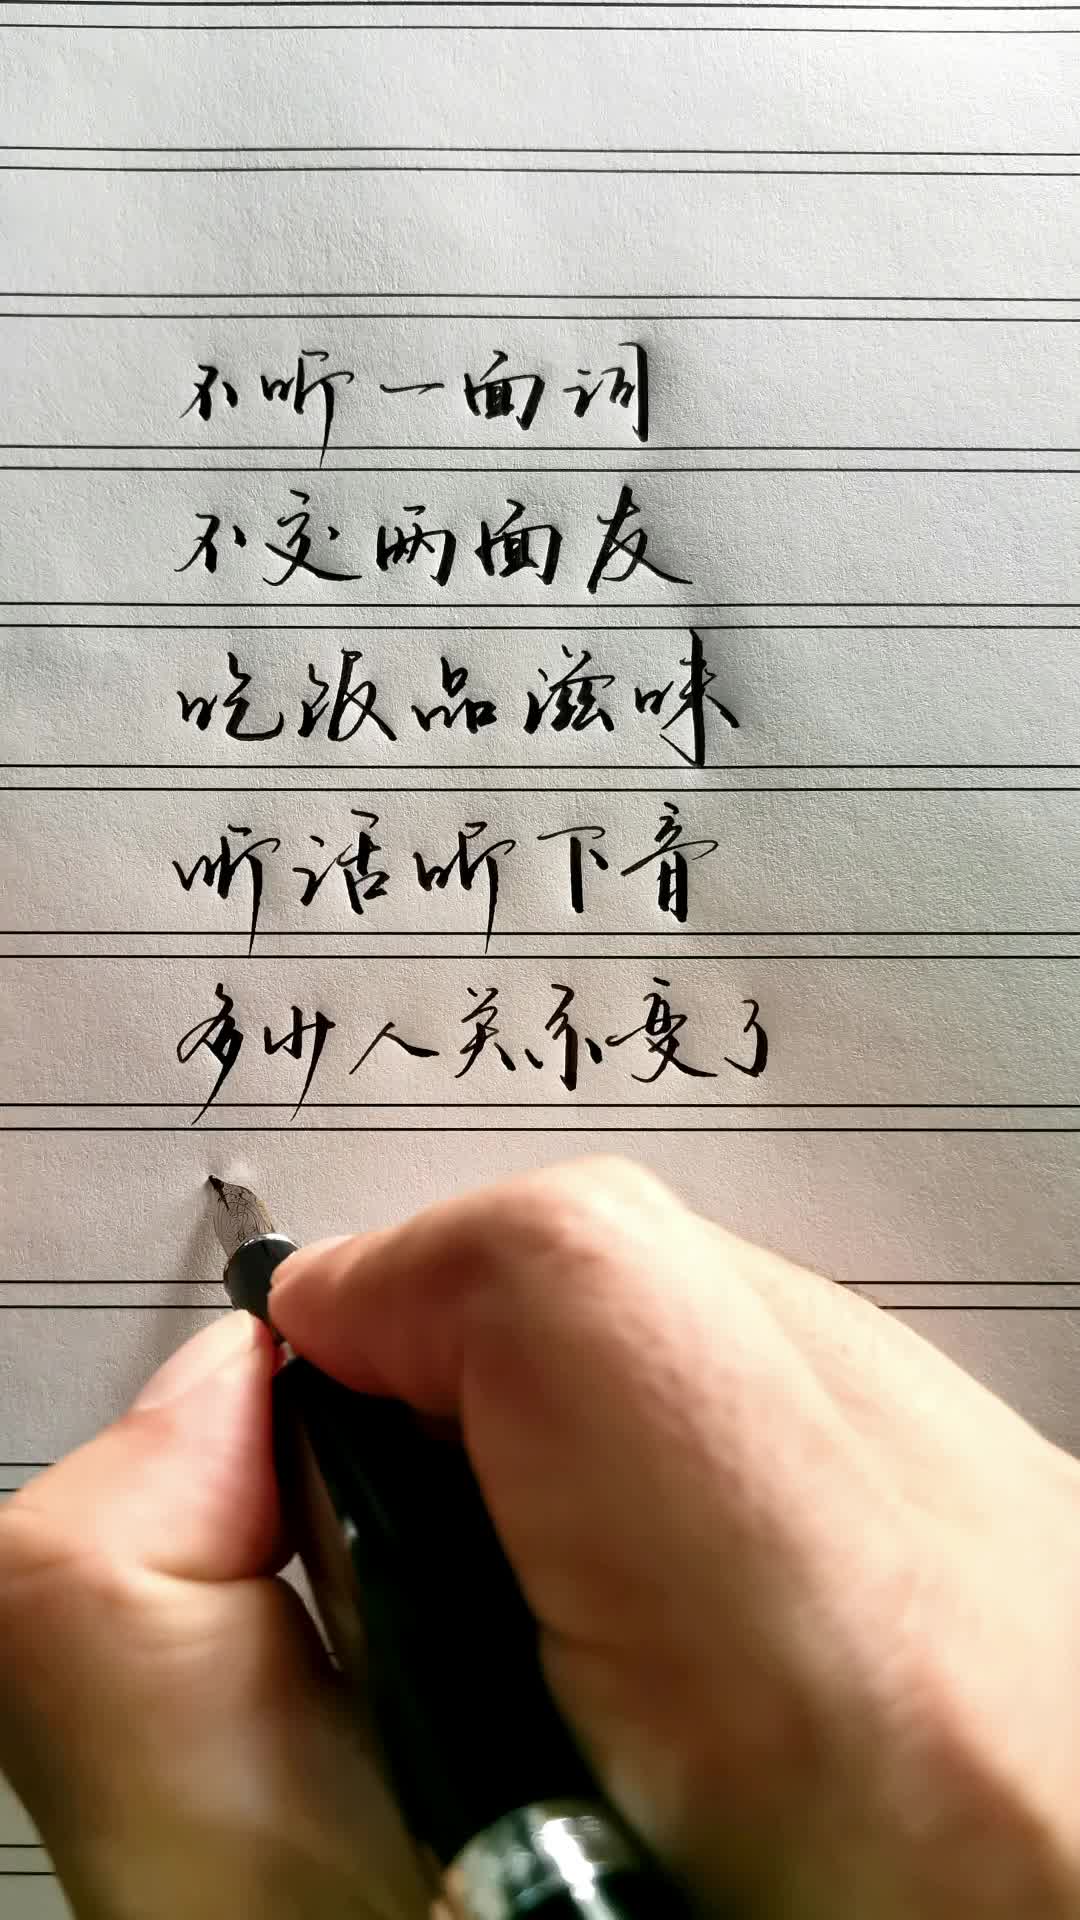 不听一面词
不交两面友
吃饭品滋味
听话听下音
多少人关系变了